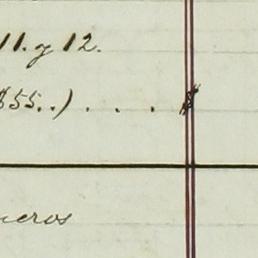 11. y 12.
$55..) . . . $
ueros